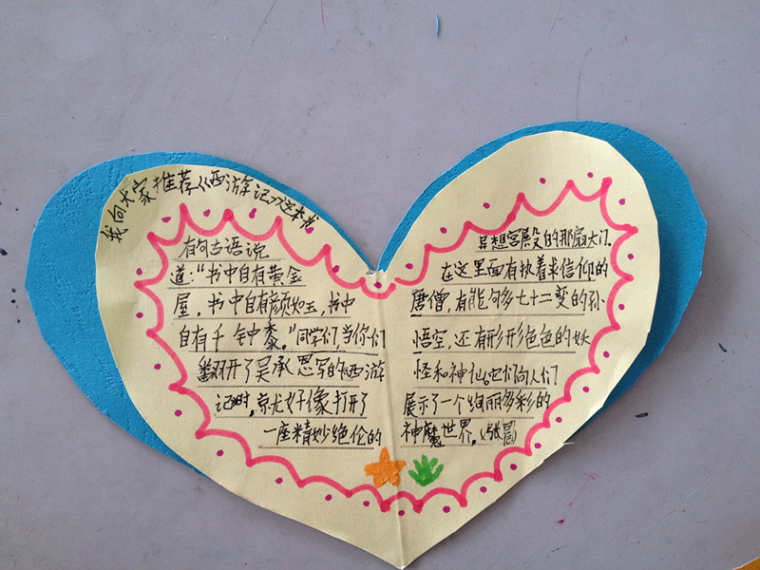 我向大家推荐《西游记》这本书
有句古语说
道:“书中自有黄金
屋,书中自有颜如玉,书中
自有千钟黍。”同学们,当你们
翻开了吴承恩写的《西游
记》时,就好像打开了
一座精妙绝伦的
异想宫殿的那扇大门。
在这里面有执着求信仰的
唐僧,有能够多七十二变的孙
悟空,还有形形色色的妖
怪和神仙。也们向人们
展示了一个绚丽多彩的
神魔世界。(张昌)